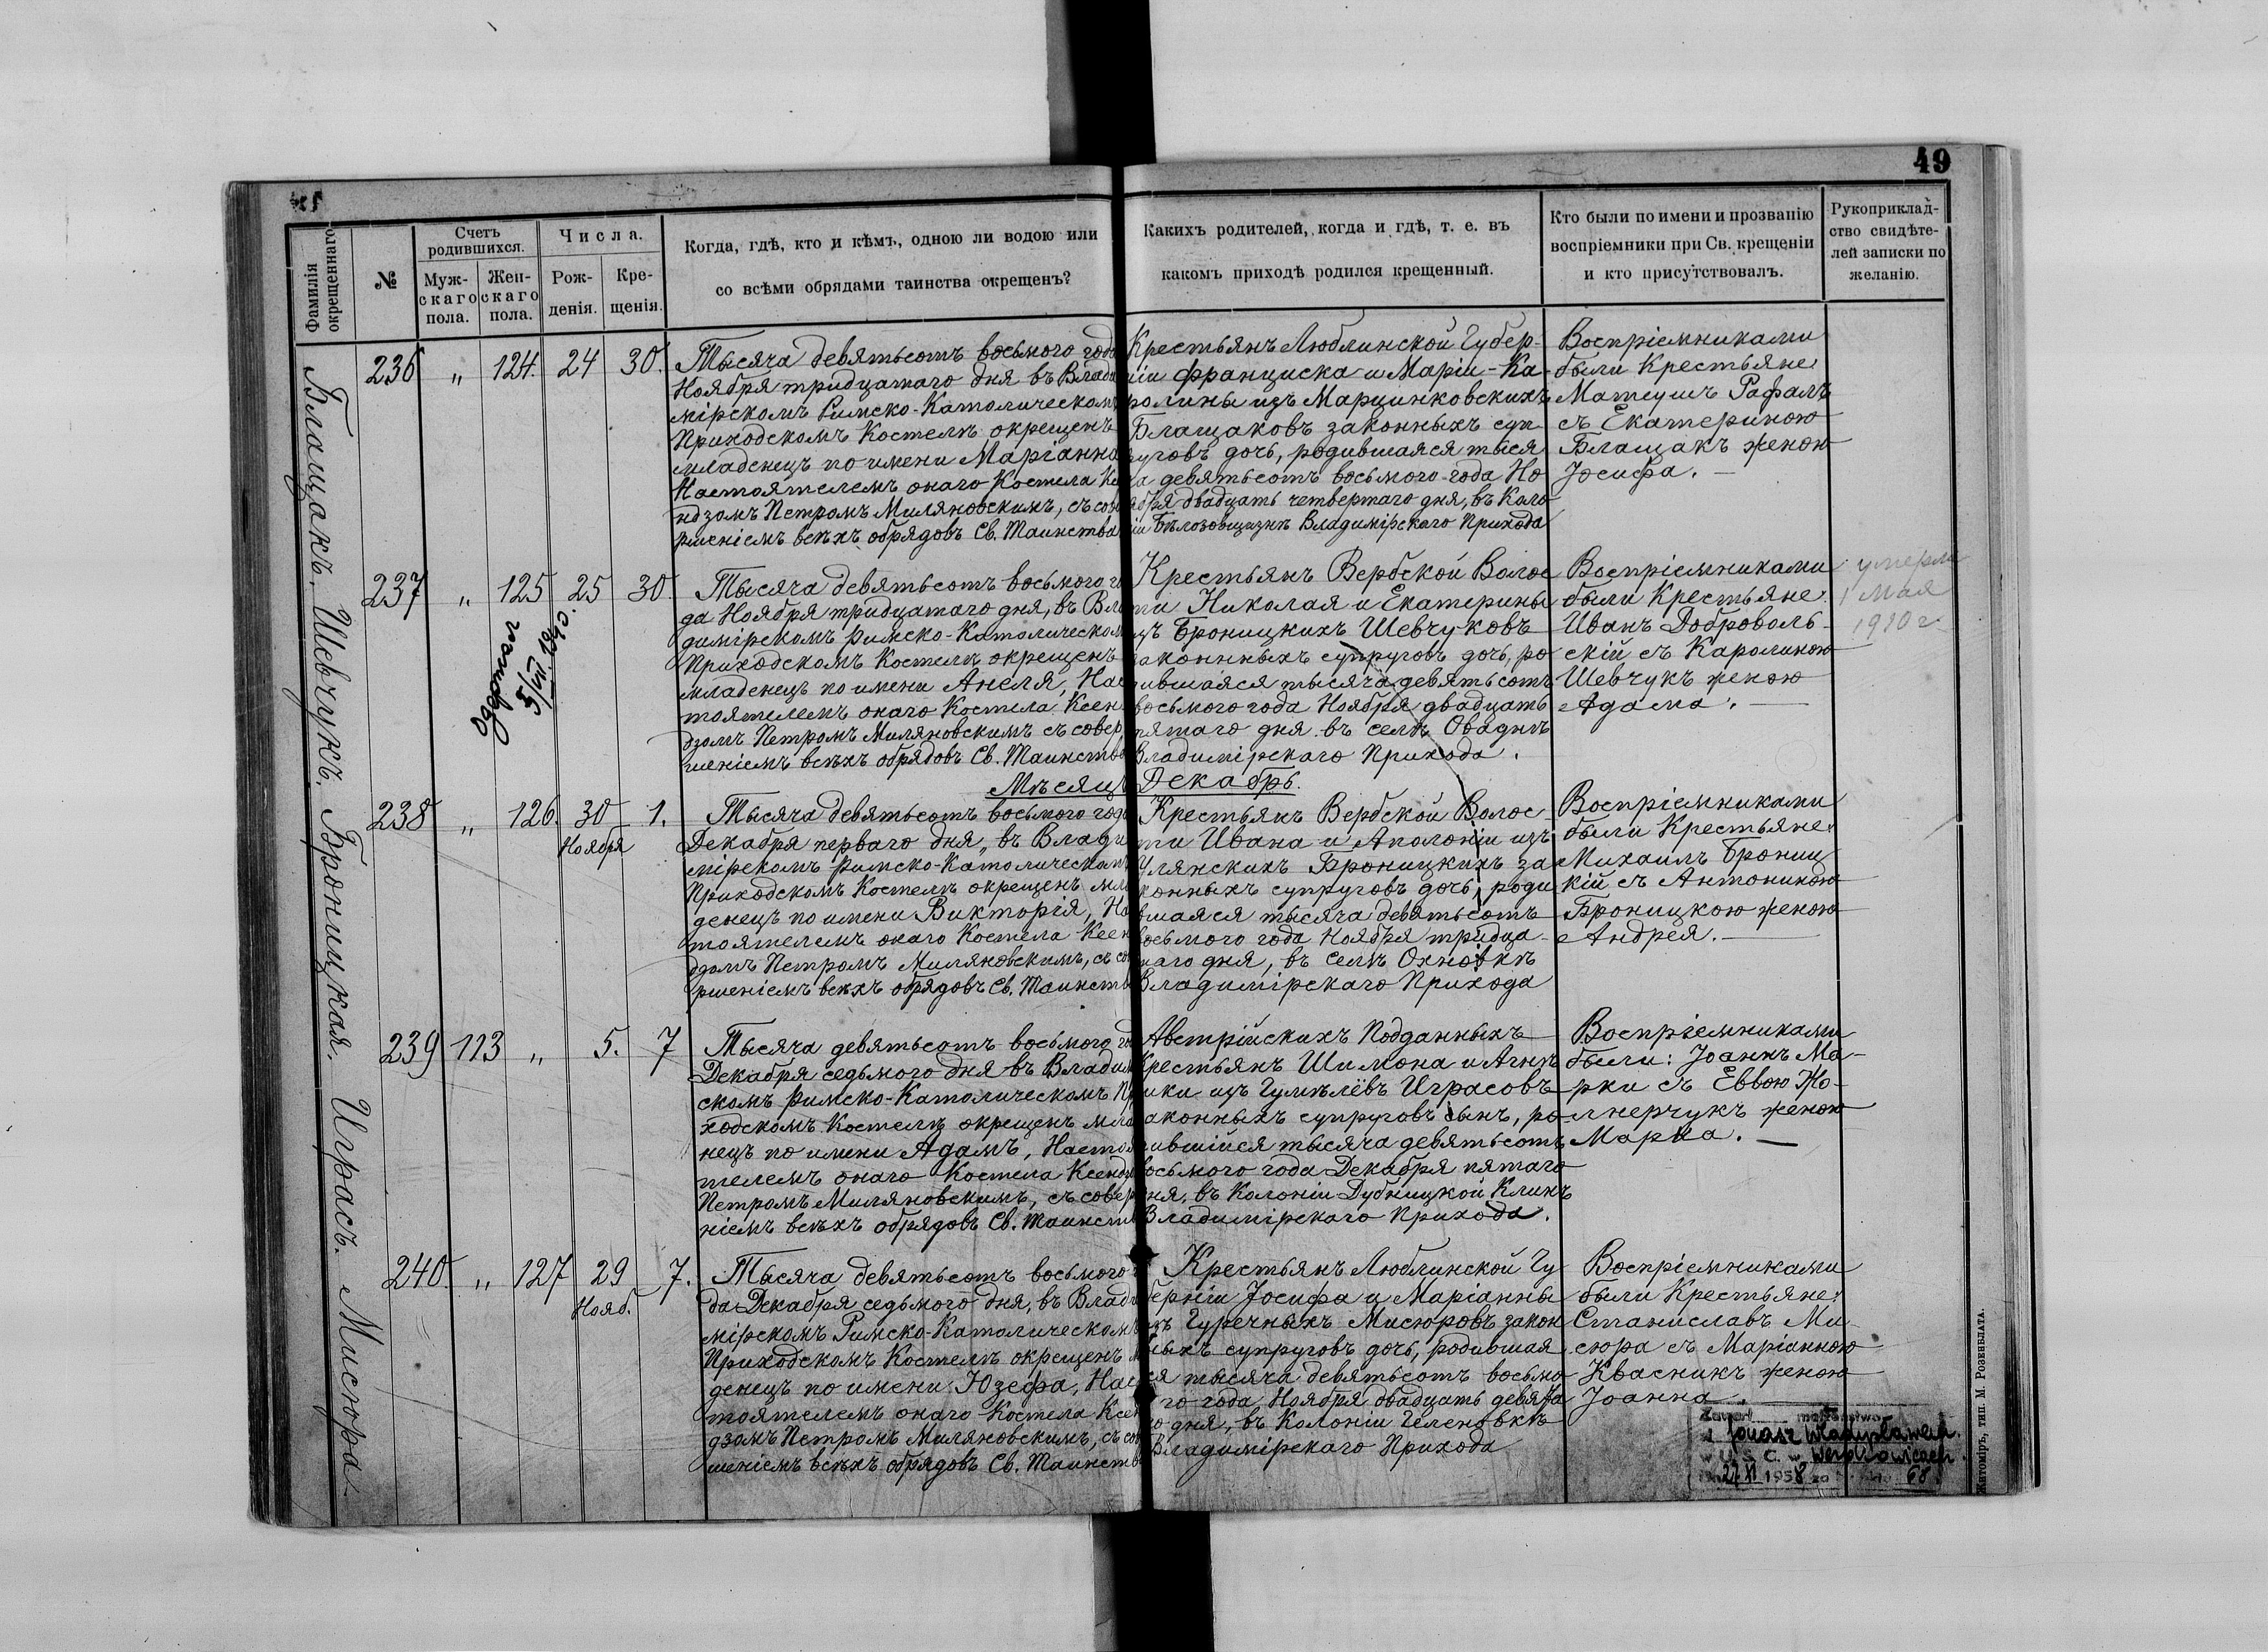 49
Фамилія окрещеннаго
№
Счетъ родившихся.
Муж-скаго пола.
Жен-скаго пола.
Числа.
Рож-денія.
Кре-щенія.
Когда, гдѣ, кто и кѣмъ, одною ли водою или
со всѣми обрядами таинства окрещенъ?
Какихъ родителей, когда и гдѣ, т. е. въ
какомъ приходѣ родился крещенный.
Кто были по имени и прозванію
воспріемники при Св. крещеніи
и кто присутствовалъ.
Рукоприклад-
ство свидѣте-
лей записки по
желанію.
Блащакъ.
236 „ 124. 24 30.
Тысяча девятьсотъ восьмого года
Ноября тридцатаго дня въ Влади
мірскомъ Римско-Католическомъ
Приходскомъ Костелѣ окрещенъ
младенецъ по имени Маріанна
Настоятелемъ онаго Костела Ксе
ндзомъ Петромъ Миляновскимъ, съ сове
ршеніемъ всѣхъ обрядовъ Св. Таинства
Крестьянъ Люблинской Губер-
ніи Франциска и Маріи-Ка-
ролины изъ Марцинковскихъ
Блащаковъ законныхъ суп-
руговъ дочь, родившаяся тыся
ча девятьсотъ восьмого года Но
ября двадцать четвертаго дня, въ Коло
ніи Бѣлозовщизнѣ Владимірскаго Прихода
Воспріемниками
были Крестьяне
Матеушъ Рафалъ
съ Екатериною
Блащакъ женою
Іосифа. —
Шевчукъ.
237 „ 125 25 30.
5/VII.1940.
Тысяча девятьсотъ восьмого го
да Ноября тридцатаго дня, въ Вла
димірскомъ Римско-Католическом
Приходскомъ Костелѣ окрещенъ
младенецъ по имени Анеля, Нас
тоятелемъ онаго Костела Ксен
дзомъ Петромъ Миляновскимъ съ совер
шеніемъ всѣхъ обрядовъ Св. Таинства
Крестьянъ Вербской Волос
ти Николая и Екатерины
изъ Броницкихъ Шевчуковъ
законныхъ супруговъ дочь, ро
дившаяся тысяча девятьсотъ
восьмого года Ноября двадцать
пятаго дня въ селѣ Оваднѣ
Владимірскаго Прихода.
Воспріемниками
были Крестьяне
Иванъ Доброволь-
скій съ Каролиною
Шевчукъ женою
Адама. —
умерла
1 Мая
1910 г.
Мѣсяцъ Декабрь.
Броницкая.
238 „ 126. 30 1.
Ноября
Тысяча девятьсотъ восьмого года
Декабря перваго дня, въ Влади
мірскомъ Римско-Католическомъ
Приходскомъ Костелѣ окрещенъ мла
денецъ по имени Викторія, Нас
тоятелемъ онаго Костела Ксен
дзомъ Петромъ Миляновскимъ, съ сове
ршеніемъ всѣхъ обрядовъ Св. Таинств
Крестьянъ Вербской Волос
ти Ивана и Аполоніи изъ
Улянскихъ Броницкихъ за
конныхъ супруговъ дочь, роди
вшаяся тысяча девятьсотъ
восьмого года Ноября тридца-
таго дня, въ селѣ Охновкѣ
Владимірскаго Прихода
Воспріемниками
были Крестьяне:
Михаилъ Брониц
кій съ Антониною
Броницкою женою
Андрея. —
Играсъ.
239 113 „ 5. 7
Тысяча девятьсотъ восьмого го
Декабря седьмого дня въ Владим
скомъ Римско-Католическомъ Пр
ходскомъ Костелѣ окрещенъ мла
нецъ по имени Адамъ, Настоя
телемъ онаго Костела Ксенд
Петромъ Миляновскимъ, съ совер
ніемъ всѣхъ обрядовъ Св. Таинств
Австрійскихъ Подданныхъ
Крестьянъ Шимона и Агнѣ
шки изъ Гумѣлёвъ Играсовъ
законныхъ супруговъ сынъ, ро-
дившійся тысяча девятьсотъ
восьмого года Декабря пятаго
дня, въ Колоніи Дубницкой Клинъ
Владимірскаго Прихода.
Воспріемниками
были: Іоаннъ Ма-
рки съ Еввою Жо-
лнерчукъ женою
Марка. —
Мисюра.
240. „ 127 29 7.
Нояб.
Тысяча девятьсотъ восьмого г
да Декабря седьмого дня, въ Влади
мірскомъ Римско-Католическомъ
Приходскомъ Костелѣ окрещенъ м
денецъ по имени Юзефа, Нас
тоятелемъ онаго Костела Ксен
дзомъ Петромъ Миляновскимъ, съ сов
шеніемъ всѣхъ обрядовъ Св. Таинств
Крестьянъ Люблинской Гу
берніи Іосифа и Маріанны
изъ Гуречныхъ Мисюровъ закон
ныхъ супруговъ дочь, родившая
ся тысяча девятьсотъ восьмо
го года Ноября двадцать девята
го дня, въ Колоніи Геленовкѣ
Владимірскаго Прихода
Воспріемниками
были Крестьяне:
Станиславъ Ми-
сюра съ Маріанною
Квасникъ женою
Іоанна.
Zawarł małżeństwo
z Jonasz Władysławem
w U.S.C. w Werbkowicach.
27 XI 1958 za Nr 68.
Житоміръ, тип. М. Розенблата.